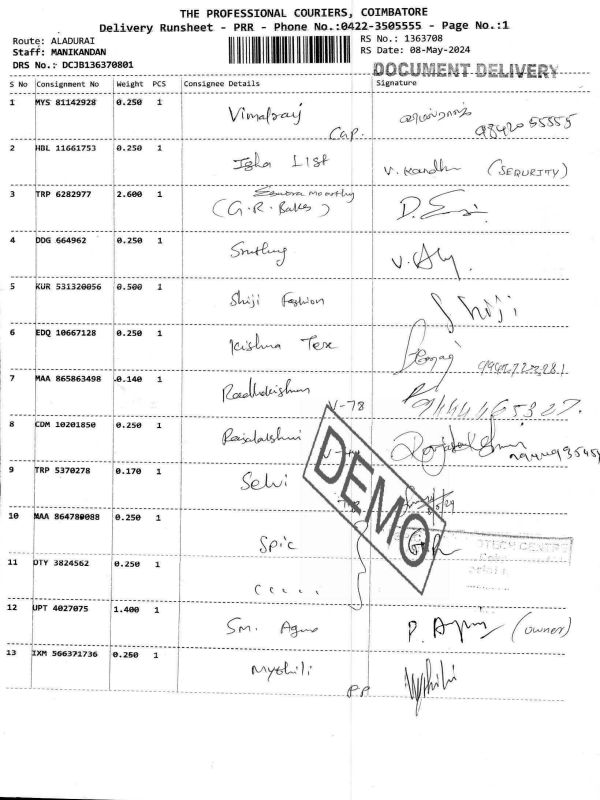 THE PROFESSIONAL COURIERS, COIMBATORE
Delivery Runsheet - PRR - Phone No.:0422-3505555 - Page No.:1
Route: ALADURAI
RS No.: 1363708
Staff: MANIKANDAN
RS Date: 08-May-2024
DRS No.: DCJB136370801
DOCUMENT DELIVERY
S No Consignment No Weight PCS Consignee Details Signature
1 MYS 81142928 0.250 1 Vimalraj
Cap. 98420 55555
2 HBL 11661753 0.250 1 Isha List V. Nandh (SEQURITY)
3 TRP 6282977 2.600 1
(G.R. Bakes)
4 DDG 664962 0.250 1
5 KUR 531320056 0.500 1 Shiji Fashion Shiji
6 EDQ 10667128 0.250 1 Krishna Tex
7 MAA 865863498 0.140 1 Radhakrishnan
V-78 9444465327.
8 CDM 10201850 0.250 1 Rajalakshmi
9 TRP 5370278 0.170 1 Selvi
DEMO
10 MAA 864780088 0.250 1 Spic
TECH CENTRE
11 DTY 3824562 0.250 1
12 UPT 4027075 1.400 1 Sm. Agro (owner)
13 IXM 566371736 0.250 1 Mythili Mythili
P.P